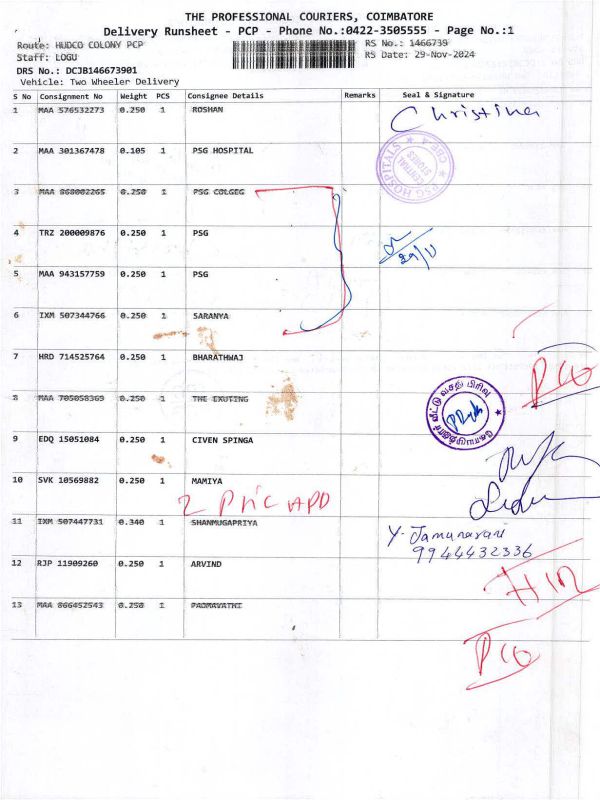 THE PROFESSIONAL COURIERS, COIMBATORE
Delivery Runsheet - PCP - Phone No.:0422-3505555 - Page No.:1
Route: HUDCO COLONY PCP
RS No.: 1466739
Staff: LOGU
RS Date: 29-Nov-2024
DRS No.: DCJB146673901
Vehicle: Two Wheeler Delivery
S No Consignment No Weight PCS Consignee Details Remarks Seal & Signature
1 MAA 576532273 0.250 1 ROSHAN Christina
2 MAA 301367478 0.105 1 PSG HOSPITAL
PSG HOSPITALS ★ CBE-4 ★
CENTRAL STORES
3 MAA 868002265 0.250 1 PSG COLGEG
4 TRZ 200009876 0.250 1 PSG
29/11
5 MAA 943157759 0.250 1 PSG
6 IXM 507344766 0.250 1 SARANYA
7 HRD 714525764 0.250 1 BHARATHWAJ
8 MAA 705058369 0.250 1 THE EXUTING
கோயமுத்தூர் வீட்டு வசதி பிரிவு
9 EDQ 15051084 0.250 1 CIVEN SPINGA
10 SVK 10569882 0.250 1 MAMIYA
11 IXM 507447731 0.340 1 SHANMUGAPRIYA
Y. Jamunarani
9944432336
12 RJP 11909260 0.250 1 ARVIND
13 MAA 866452543 0.250 1 PADMAVATHI